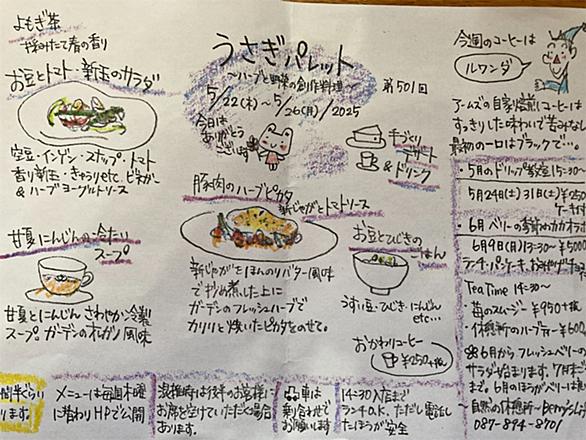 よもぎ茶
摘みたて春の香り
お豆とトマト 新玉のサラダ
空豆・インゲン・スナップ・トマト
香り新玉・きゅうりetc. ビネガー
& ハーブヨーグルトソース
甘夏とにんじんの冷たい
スープ
甘夏とにんじん さわやか冷製
スープ。ガーデンのオレガノ風味
うさぎパレット
〜ハーブと野菜の創作料理〜
第501回
5/22(木)〜5/26(月)/2025
今日は
ありがとう
ございます
手づくり
デザート
& ドリンク
豚肉のハーブピカタ
新じゃがとトマトソース
新じゃがをほんのりバター風味
で炒め煮した上に
ガーデンのフレッシュハーブで
カリリと焼いたピカタをのせて。
お豆とひじきの
ごはん
うすい豆・ひじき・にんじん
etc…
おかわりコーヒー
¥250
今週のコーヒーは
ルワンダ
アームズの自家焙煎コーヒーは
すっきりした味わいで苦みなし
最初の一口はブラックで…。
・5月のドリップ教室 15:30〜
5月24日(土)31日(土)¥250
・6月 ベリーの季節の
6月9日(月)13:30〜 ¥500
Tea Time 14:30〜
・苺のスムージー ¥950
・休憩所のハーブティー ¥600
6月からフレッシュベリー
サラダ始まります。7月末
まで。6月のほうがベリーは
自然の休憩所-Berry's
087-894-8701
間半ぐらい
ります。
メニューは毎週木曜
に替わりHPで公開
混雑時は後半のお客様に
お席を空けていただく場合
あります。
車は
乗り合わせで
お願いします
14:30入店まで
ランチO.K. ただし電話し
たほうが安全